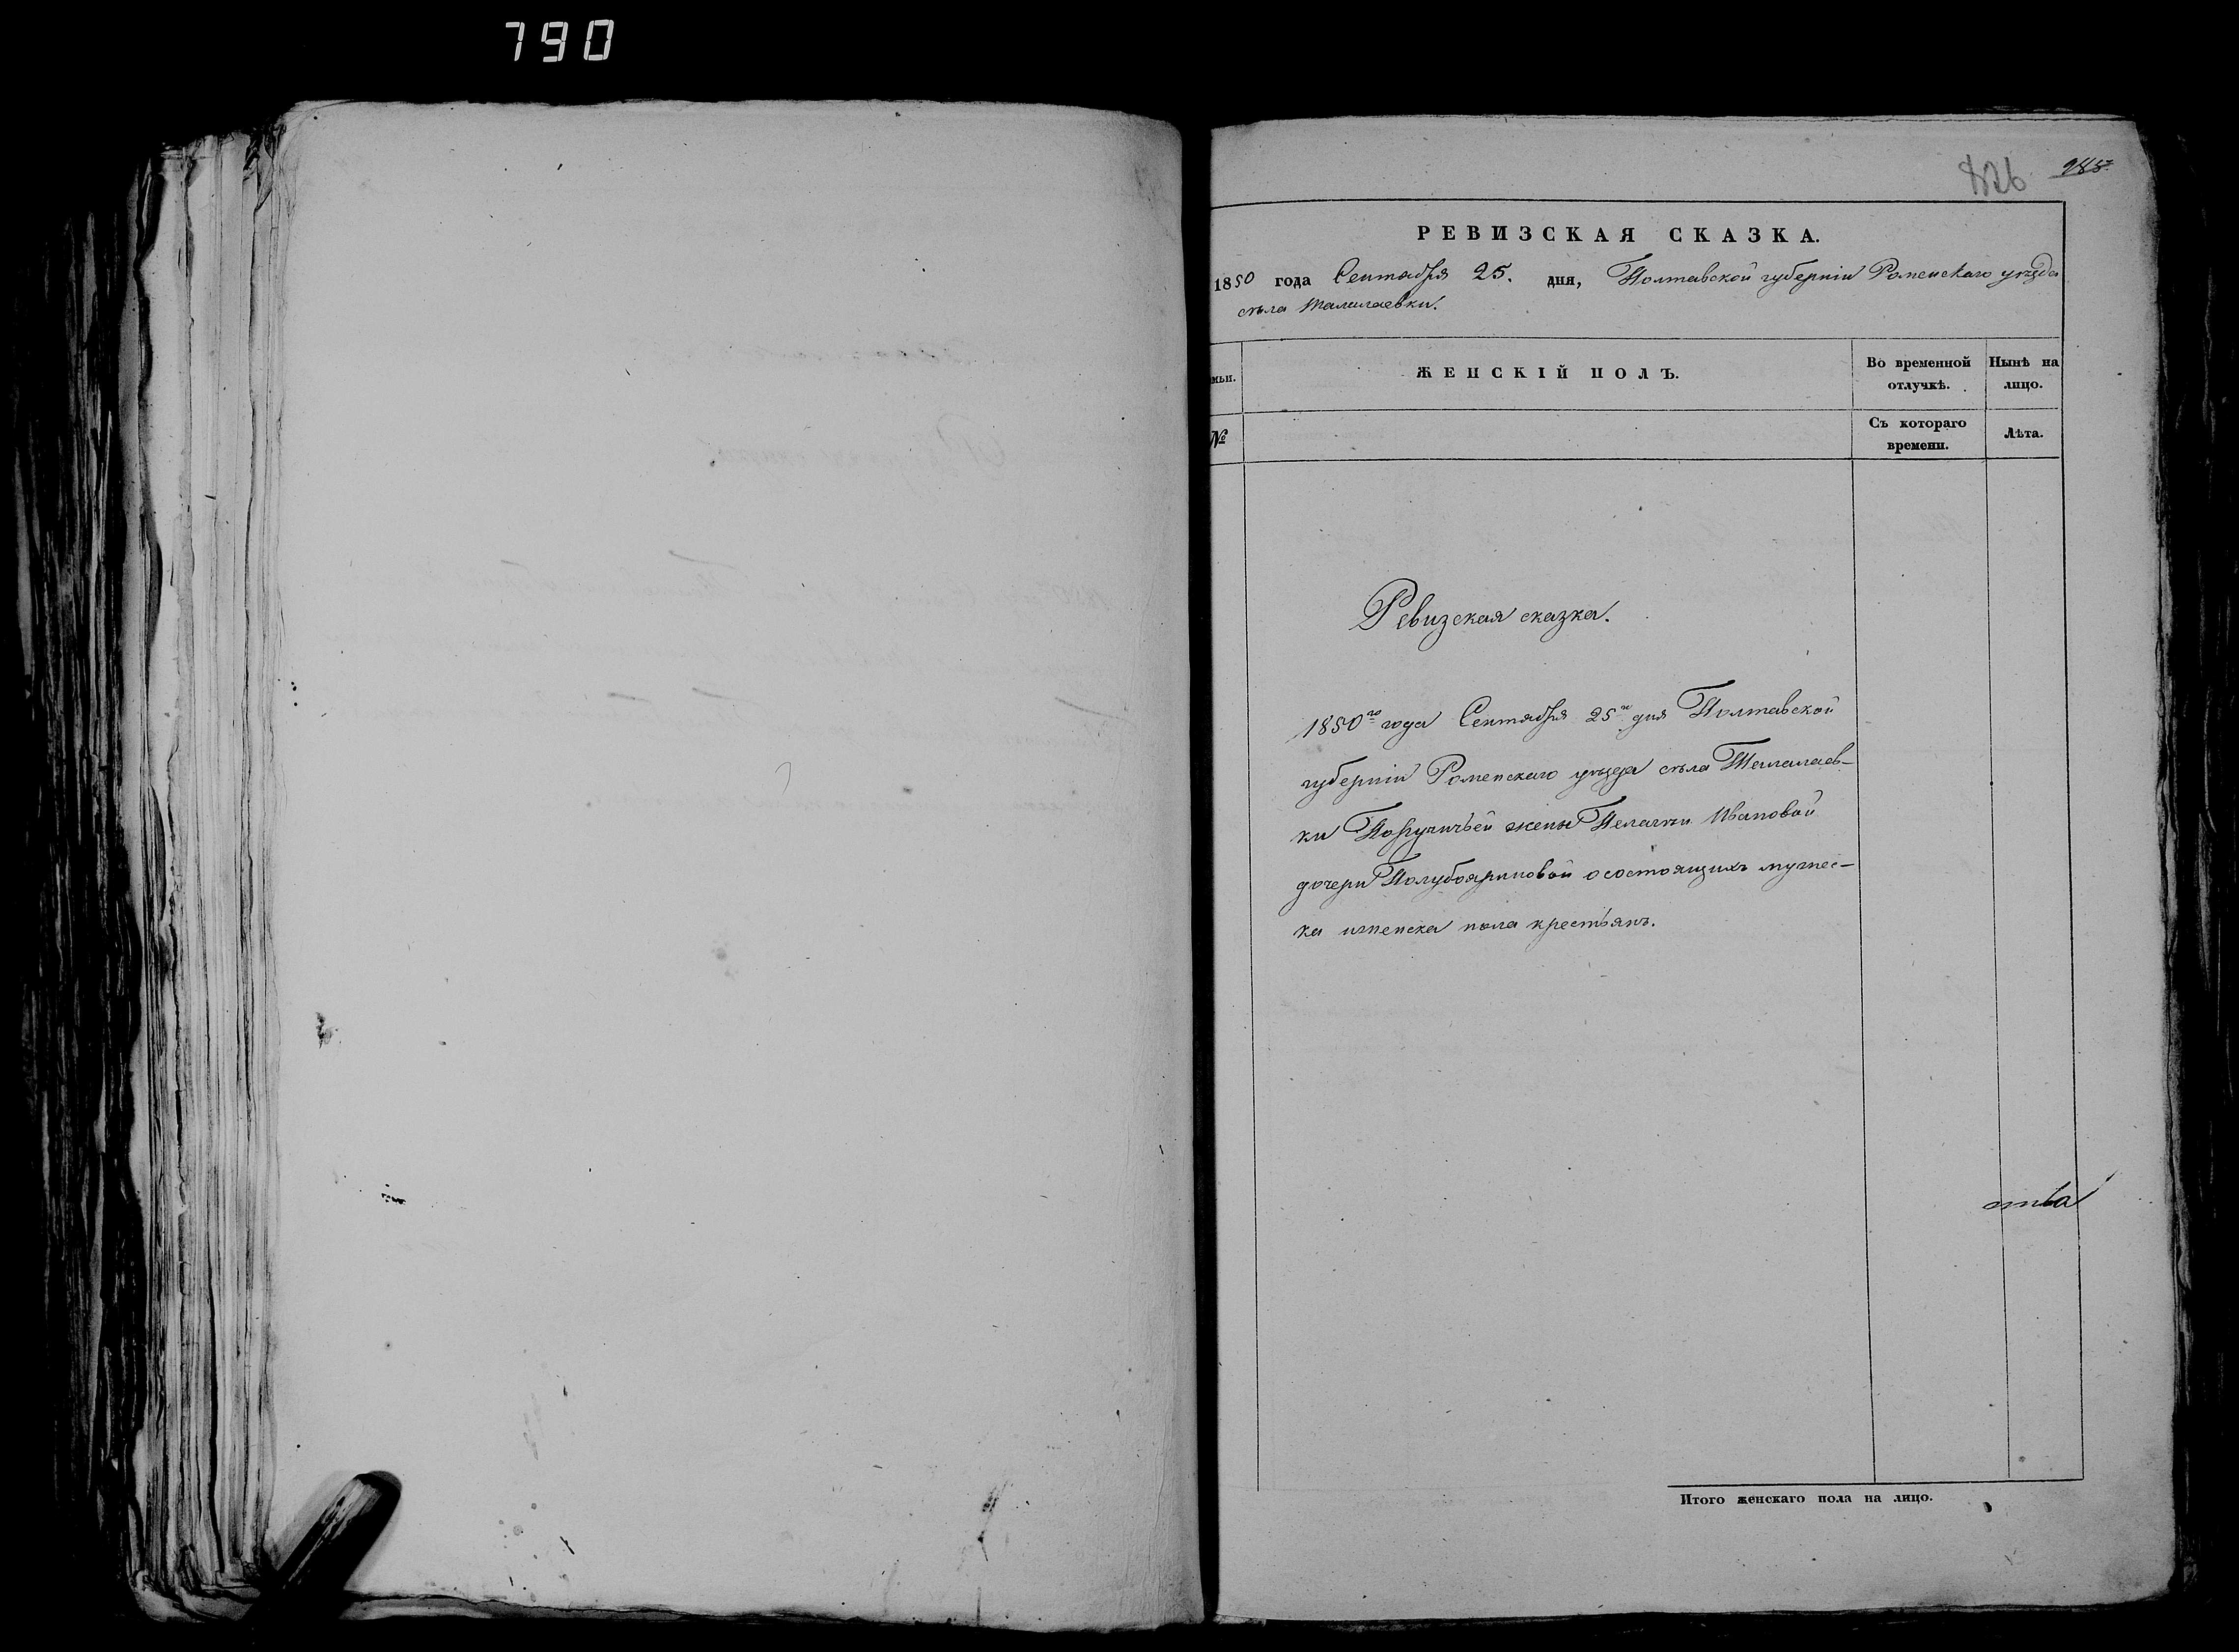 790
985
РЕВИЗСКАЯ СКАЗКА.
1850 года Сентября 25. дня, Полтавской губерніи Роменскаго уѣзда
сѣла Талалаевки.
мьи.
ЖЕНСКІЙ ПОЛЪ.
Во временной отлучкѣ.
Нынѣ на лицо.
№
Съ котораго времени.
Лѣта.
Ревизская сказка.
1850го года Сентября 25го дня Полтавской
губерніи Роменскаго уѣзда сѣла Талалаев-
ки Поручичьей жены Пелагеи Ивановой
дочери Полубояриновой о состоящихъ мужес-
ка иженска пола крестьянъ.
Итого женскаго пола на лицо.